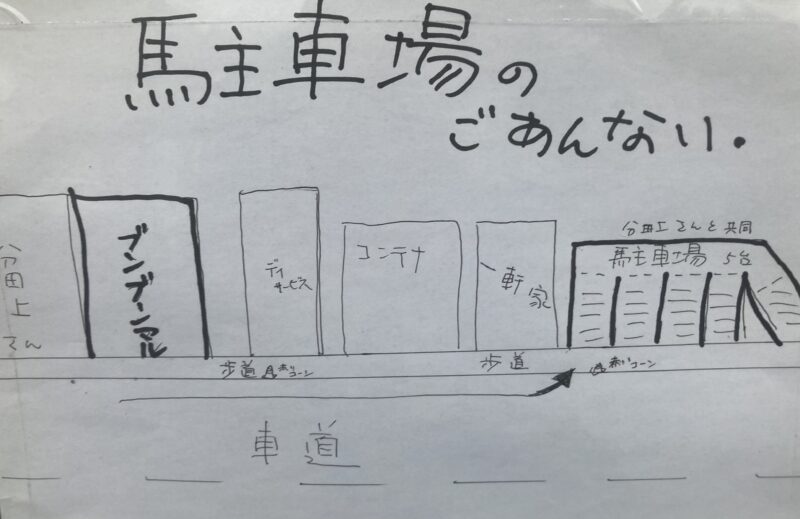 駐車場の
ごあんない.
分田上さんと共同
駐車場 5台
分田上さん
ブンブーンマル
デイ
サービス
コンテナ
一軒家
歩道
赤いコーン
歩道
赤いコーン
車道